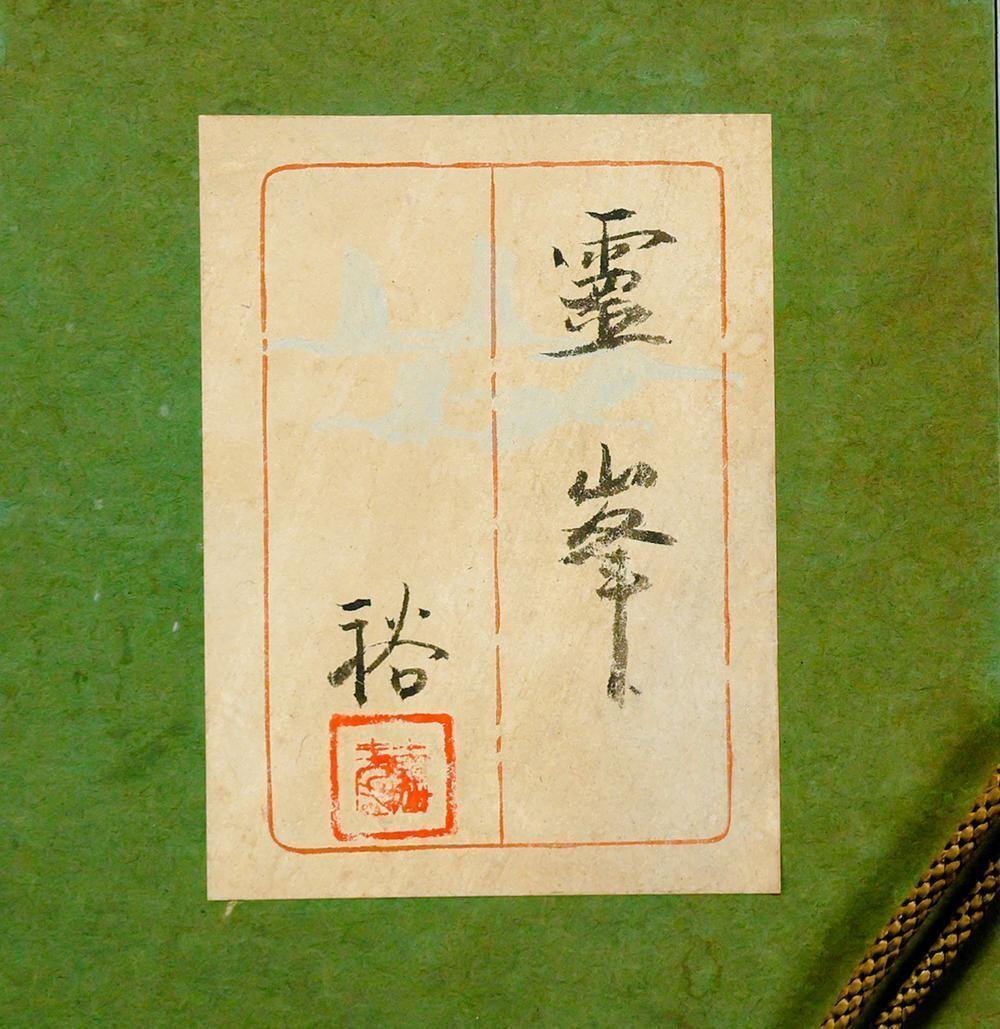 靈峯
裕